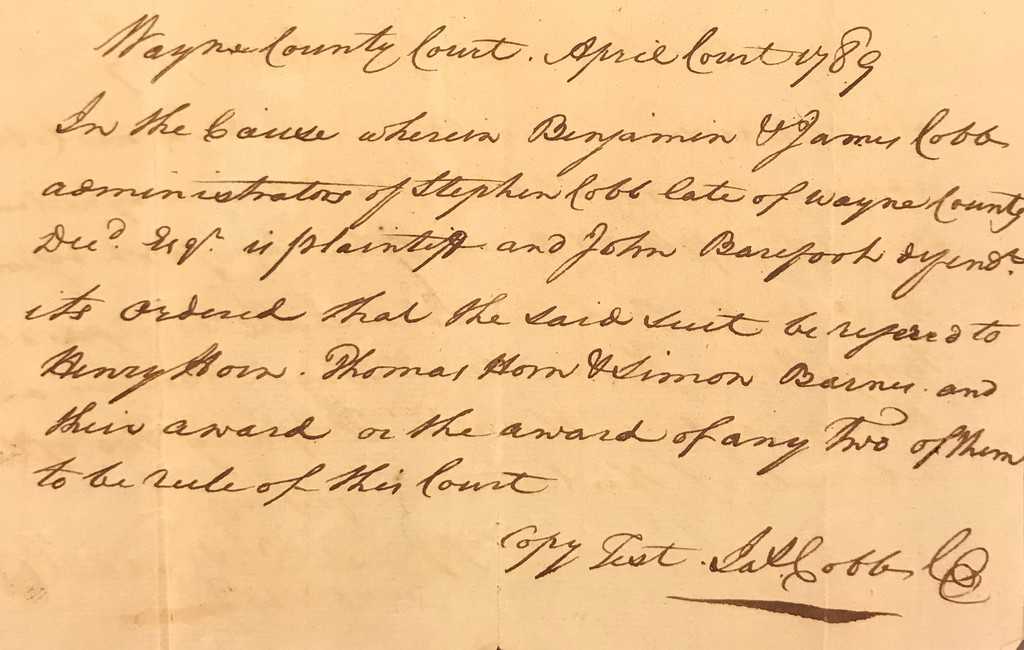 Wayne County Court. April Court 1789
In the Cause wherein Benjamin & James Cobb
administrators of Stephen Cobb late of Wayne County
Decd. Esqr. is plaintiff and John Barefoot defendt.
its ordered that the said suit be refered to
Henry Horn. Thomas Horn & Simon Barnes and
their award or the award of any Two of them
to be rule of this Court
Copy Test. Jas. Cobb